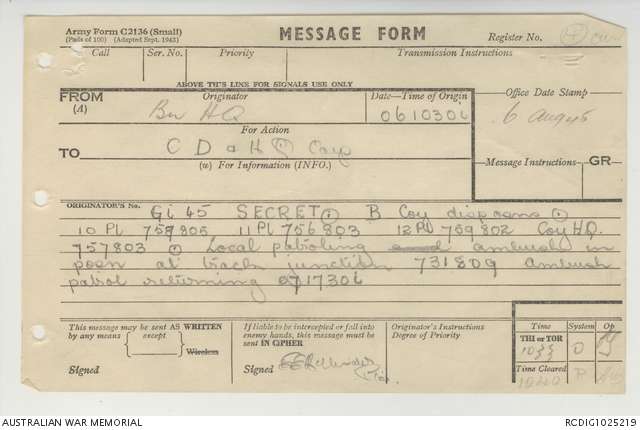 Army Form C2136 (Small)
(Pads of 100) (Adapted Sept. 1943)
MESSAGE FORM
Register No.
Call Ser. No. Priority Transmission Instructions
ABOVE THIS LINE FOR SIGNALS USE ONLY
FROM
(A)
Originator
Bn HQ
Date—Time of Origin
061030L
Office Date Stamp
6 August
For Action
TO
C D a H Coy
(w) For Information (INFO.)
Message Instructions GR
ORIGINATOR'S No.
Gi 45 SECRET B Coy dispoons
10 Pl 759805 11 Pl 756803 12 Pl 759802 Coy HQ
757803 Local patroling ambush in
posn at track junction 731809 ambush
patrol returning 071730L
This message may be sent AS WRITTEN
by any means except
Wireless
Signed
If liable to be intercepted or fall into
enemy hands, this message must be
sent IN CIPHER
Signed
Originator's Instructions
Degree of Priority
Time System Op
THI or TOR
1033 D
Time Cleared
1040 P
AUSTRALIAN WAR MEMORIAL
RCDIG1025219